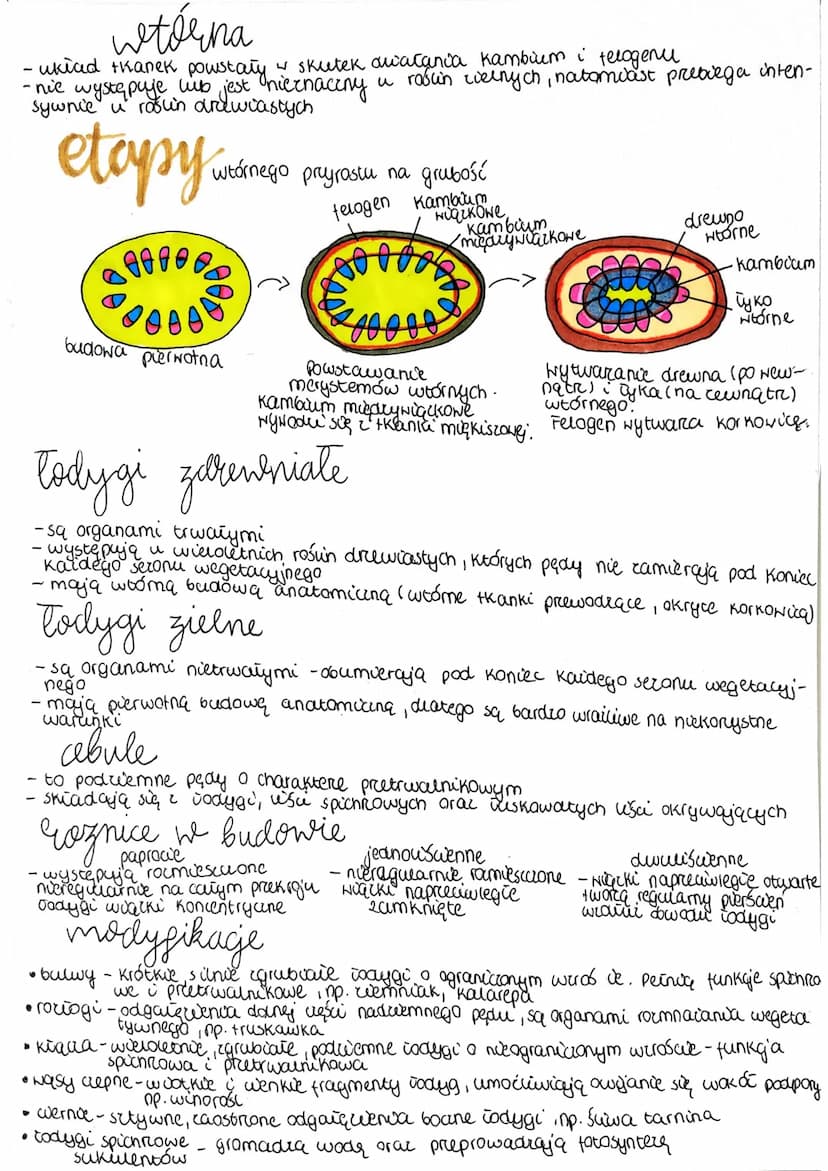 wtórna
- układ tkanek powstały w skutek działania kambium i felogenu
- nie występuje lub jest nieznaczny u roślin zielnych, natomiast przebiega inten-
sywnie u roślin drzewiastych
etapy wtórnego przyrostu na grubość
felogen
kambium
wiązkowe
kambium
międzywiązkowe
drewno
wtórne
kambium
łyko
wtórne
budowa pierwotna
powstawanie
merystemów wtórnych.
kambium międzywiązkowe
wywodzi się z tkanki miękiszowej.
wytwarzanie drewna (po wew-
nątrz) i łyka (na zewnątrz)
wtórnego.
Felogen wytwarza korkowicę.
Łodygi zdrewniałe
- są organami trwałymi
- występują u wieloletnich roślin drzewiastych, których pędy nie zamierają pod koniec
każdego sezonu wegetacyjnego
- mają wtórną budową anatomiczną (wtórne tkanki przewodzące, okryte korkowicą)
Łodygi zielne
- są organami nietrwałymi - obumierają pod koniec każdego sezonu wegetacyj-
nego
- mają pierwotną budowę anatomiczną, dlatego są bardzo wrażliwe na niekorzystne
warunki
cebule
- to podziemne pędy o charakterze przetrwalnikowym
- składają się z łodygi, liści spichrzowych oraz łuskowatych liści okrywających
różnice w budowie
paprocie
- występują rozmieszczone
nieregularnie na całym przekroju
łodygi wiązki koncentryczne
jednoliścienne
- nieregularnie rozmieszczone
wiązki naprzeciwległe
zamknięte
dwuliścienne
- wiązki naprzeciwległe otwarte
tworzą regularny pierścień
wzdłuż obwodu łodygi
modyfikacje
• bulwy - krótkie, silnie zgrubiałe łodygi o ograniczonym wzroście. Pełnią funkcje spichrzo
we i przetrwalnikowe, np. ziemniak, kalarepa
• rozłogi - odgałęzienia dolnej części nadziemnego pędu, są organami rozmnażania wegeta
tywnego, np. truskawka
• kłącza - wieloletnie, zgrubiałe, podziemne łodygi o nieograniczonym wzroście - funkcja
spichrzowa i przetrwalnikowa
• wąsy czepne - wiotkie i cienkie fragmenty łodyg, umożliwiają owijanie się wokół podpory
np. winorośl
• ciernie - sztywne, zaostrzone odgałęzienia boczne łodygi, np. śliwa tarnina
• łodygi spichrzowe - gromadzą wodę oraz przeprowadzają fotosyntezę
sukulentów